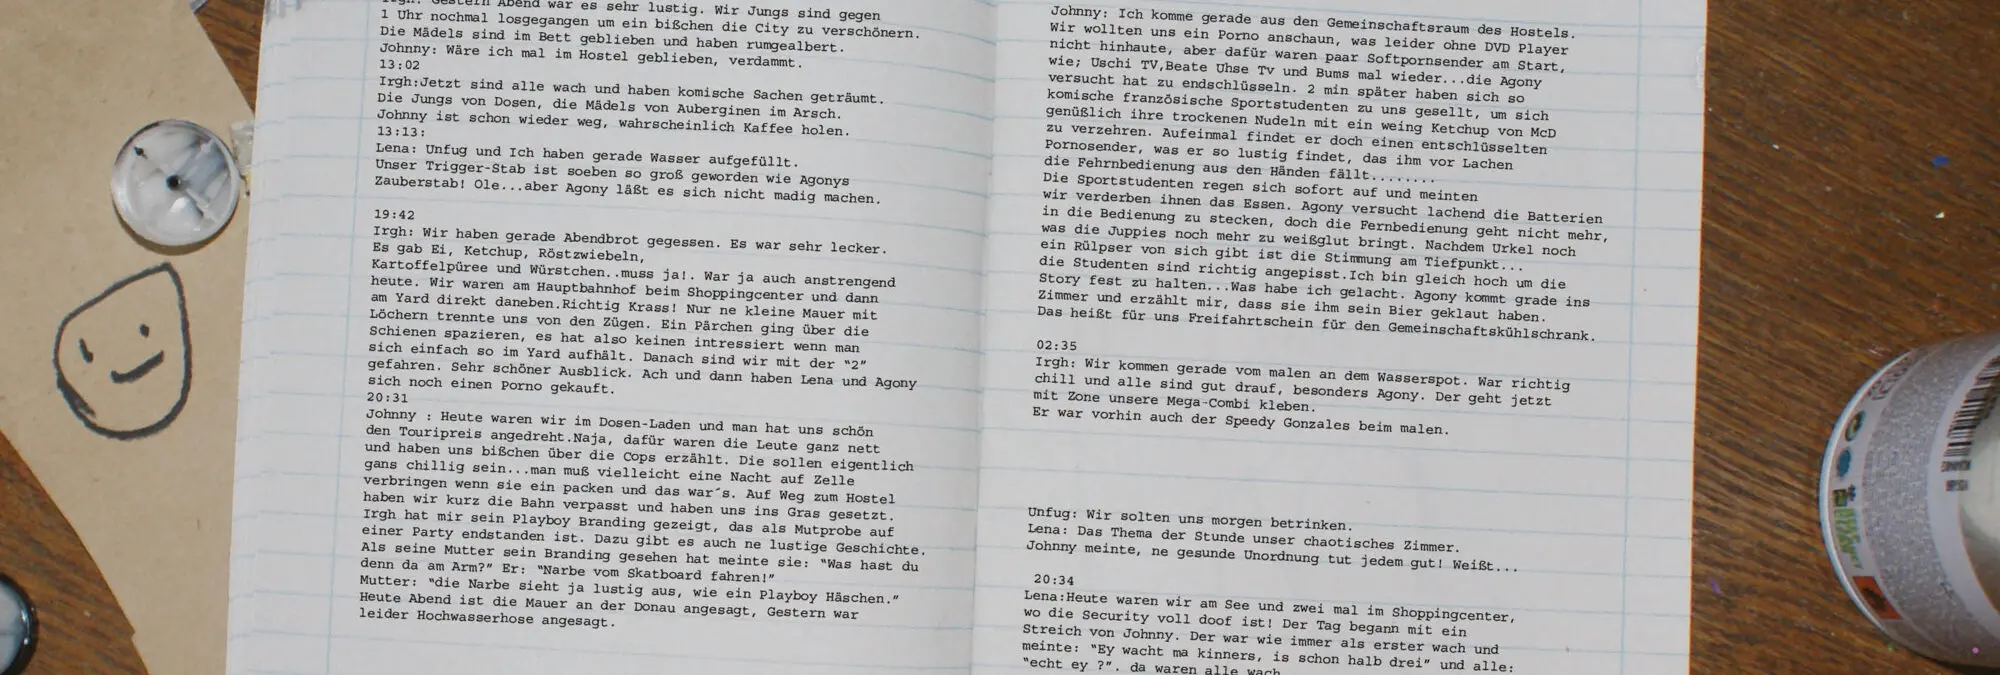 Irgh: Gestern Abend war es sehr lustig. Wir Jungs sind gegen
1 Uhr nochmal losgegangen um ein bißchen die City zu verschönern.
Die Mädels sind im Bett geblieben und haben rumgealbert.
Johnny: Wäre ich mal im Hostel geblieben, verdammt.
13:02
Irgh:Jetzt sind alle wach und haben komische Sachen geträumt.
Die Jungs von Dosen, die Mädels von Auberginen im Arsch.
Johnny ist schon wieder weg, wahrscheinlich Kaffee holen.
13:13:
Lena: Unfug und Ich haben gerade Wasser aufgefüllt.
Unser Trigger-Stab ist soeben so groß geworden wie Agonys
Zauberstab! Ole...aber Agony läßt es sich nicht madig machen.
19:42
Irgh: Wir haben gerade Abendbrot gegessen. Es war sehr lecker.
Es gab Ei, Ketchup, Röstzwiebeln,
Kartoffelpüree und Würstchen..muss ja!. War ja auch anstrengend
heute. Wir waren am Hauptbahnhof beim Shoppingcenter und dann
am Yard direkt daneben.Richtig Krass! Nur ne kleine Mauer mit
Löchern trennte uns von den Zügen. Ein Pärchen ging über die
Schienen spazieren, es hat also keinen intressiert wenn man
sich einfach so im Yard aufhält. Danach sind wir mit der "2"
gefahren. Sehr schöner Ausblick. Ach und dann haben Lena und Agony
sich noch einen Porno gekauft.
20:31
Johnny : Heute waren wir im Dosen-Laden und man hat uns schön
den Touripreis angedreht.Naja, dafür waren die Leute ganz nett
und haben uns bißchen über die Cops erzählt. Die sollen eigentlich
gans chillig sein...man muß vielleicht eine Nacht auf Zelle
verbringen wenn sie ein packen und das war´s. Auf Weg zum Hostel
haben wir kurz die Bahn verpasst und haben uns ins Gras gesetzt.
Irgh hat mir sein Playboy Branding gezeigt, das als Mutprobe auf
einer Party endstanden ist. Dazu gibt es auch ne lustige Geschichte.
Als seine Mutter sein Branding gesehen hat meinte sie: "Was hast du
denn da am Arm?" Er: "Narbe vom Skatboard fahren!"
Mutter: "die Narbe sieht ja lustig aus, wie ein Playboy Häschen."
Heute Abend ist die Mauer an der Donau angesagt, Gestern war
leider Hochwasserhose angesagt.
Johnny: Ich komme gerade aus den Gemeinschaftsraum des Hostels.
Wir wollten uns ein Porno anschaun, was leider ohne DVD Player
nicht hinhaute, aber dafür waren paar Softpornsender am Start,
wie; Uschi TV,Beate Uhse Tv und Bums mal wieder...die Agony
versucht hat zu endschlüsseln. 2 min später haben sich so
komische französische Sportstudenten zu uns gesellt, um sich
genüßlich ihre trockenen Nudeln mit ein weing Ketchup von McD
zu verzehren. Aufeinmal findet er doch einen entschlüsselten
Pornosender, was er so lustig findet, das ihm vor Lachen
die Fehrnbedienung aus den Händen fällt........
Die Sportstudenten regen sich sofort auf und meinten
wir verderben ihnen das Essen. Agony versucht lachend die Batterien
in die Bedienung zu stecken, doch die Fernbedienung geht nicht mehr,
was die Juppies noch mehr zu weißglut bringt. Nachdem Urkel noch
ein Rülpser von sich gibt ist die Stimmung am Tiefpunkt...
die Studenten sind richtig angepisst.Ich bin gleich hoch um die
Story fest zu halten...Was habe ich gelacht. Agony kommt grade ins
Zimmer und erzählt mir, dass sie ihm sein Bier geklaut haben.
Das heißt für uns Freifahrtschein für den Gemeinschaftskühlschrank.
02:35
Irgh: Wir kommen gerade vom malen an dem Wasserspot. War richtig
chill und alle sind gut drauf, besonders Agony. Der geht jetzt
mit Zone unsere Mega-Combi kleben.
Er war vorhin auch der Speedy Gonzales beim malen.
Unfug: Wir solten uns morgen betrinken.
Lena: Das Thema der Stunde unser chaotisches Zimmer.
Johnny meinte, ne gesunde Unordnung tut jedem gut! Weißt...
20:34
Lena:Heute waren wir am See und zwei mal im Shoppingcenter,
wo die Security voll doof ist! Der Tag begann mit ein
Streich von Johnny. Der war wie immer als erster wach und
meinte: "Ey wacht ma kinners, is schon halb drei" und alle:
"echt ey ?". da waren alle wach